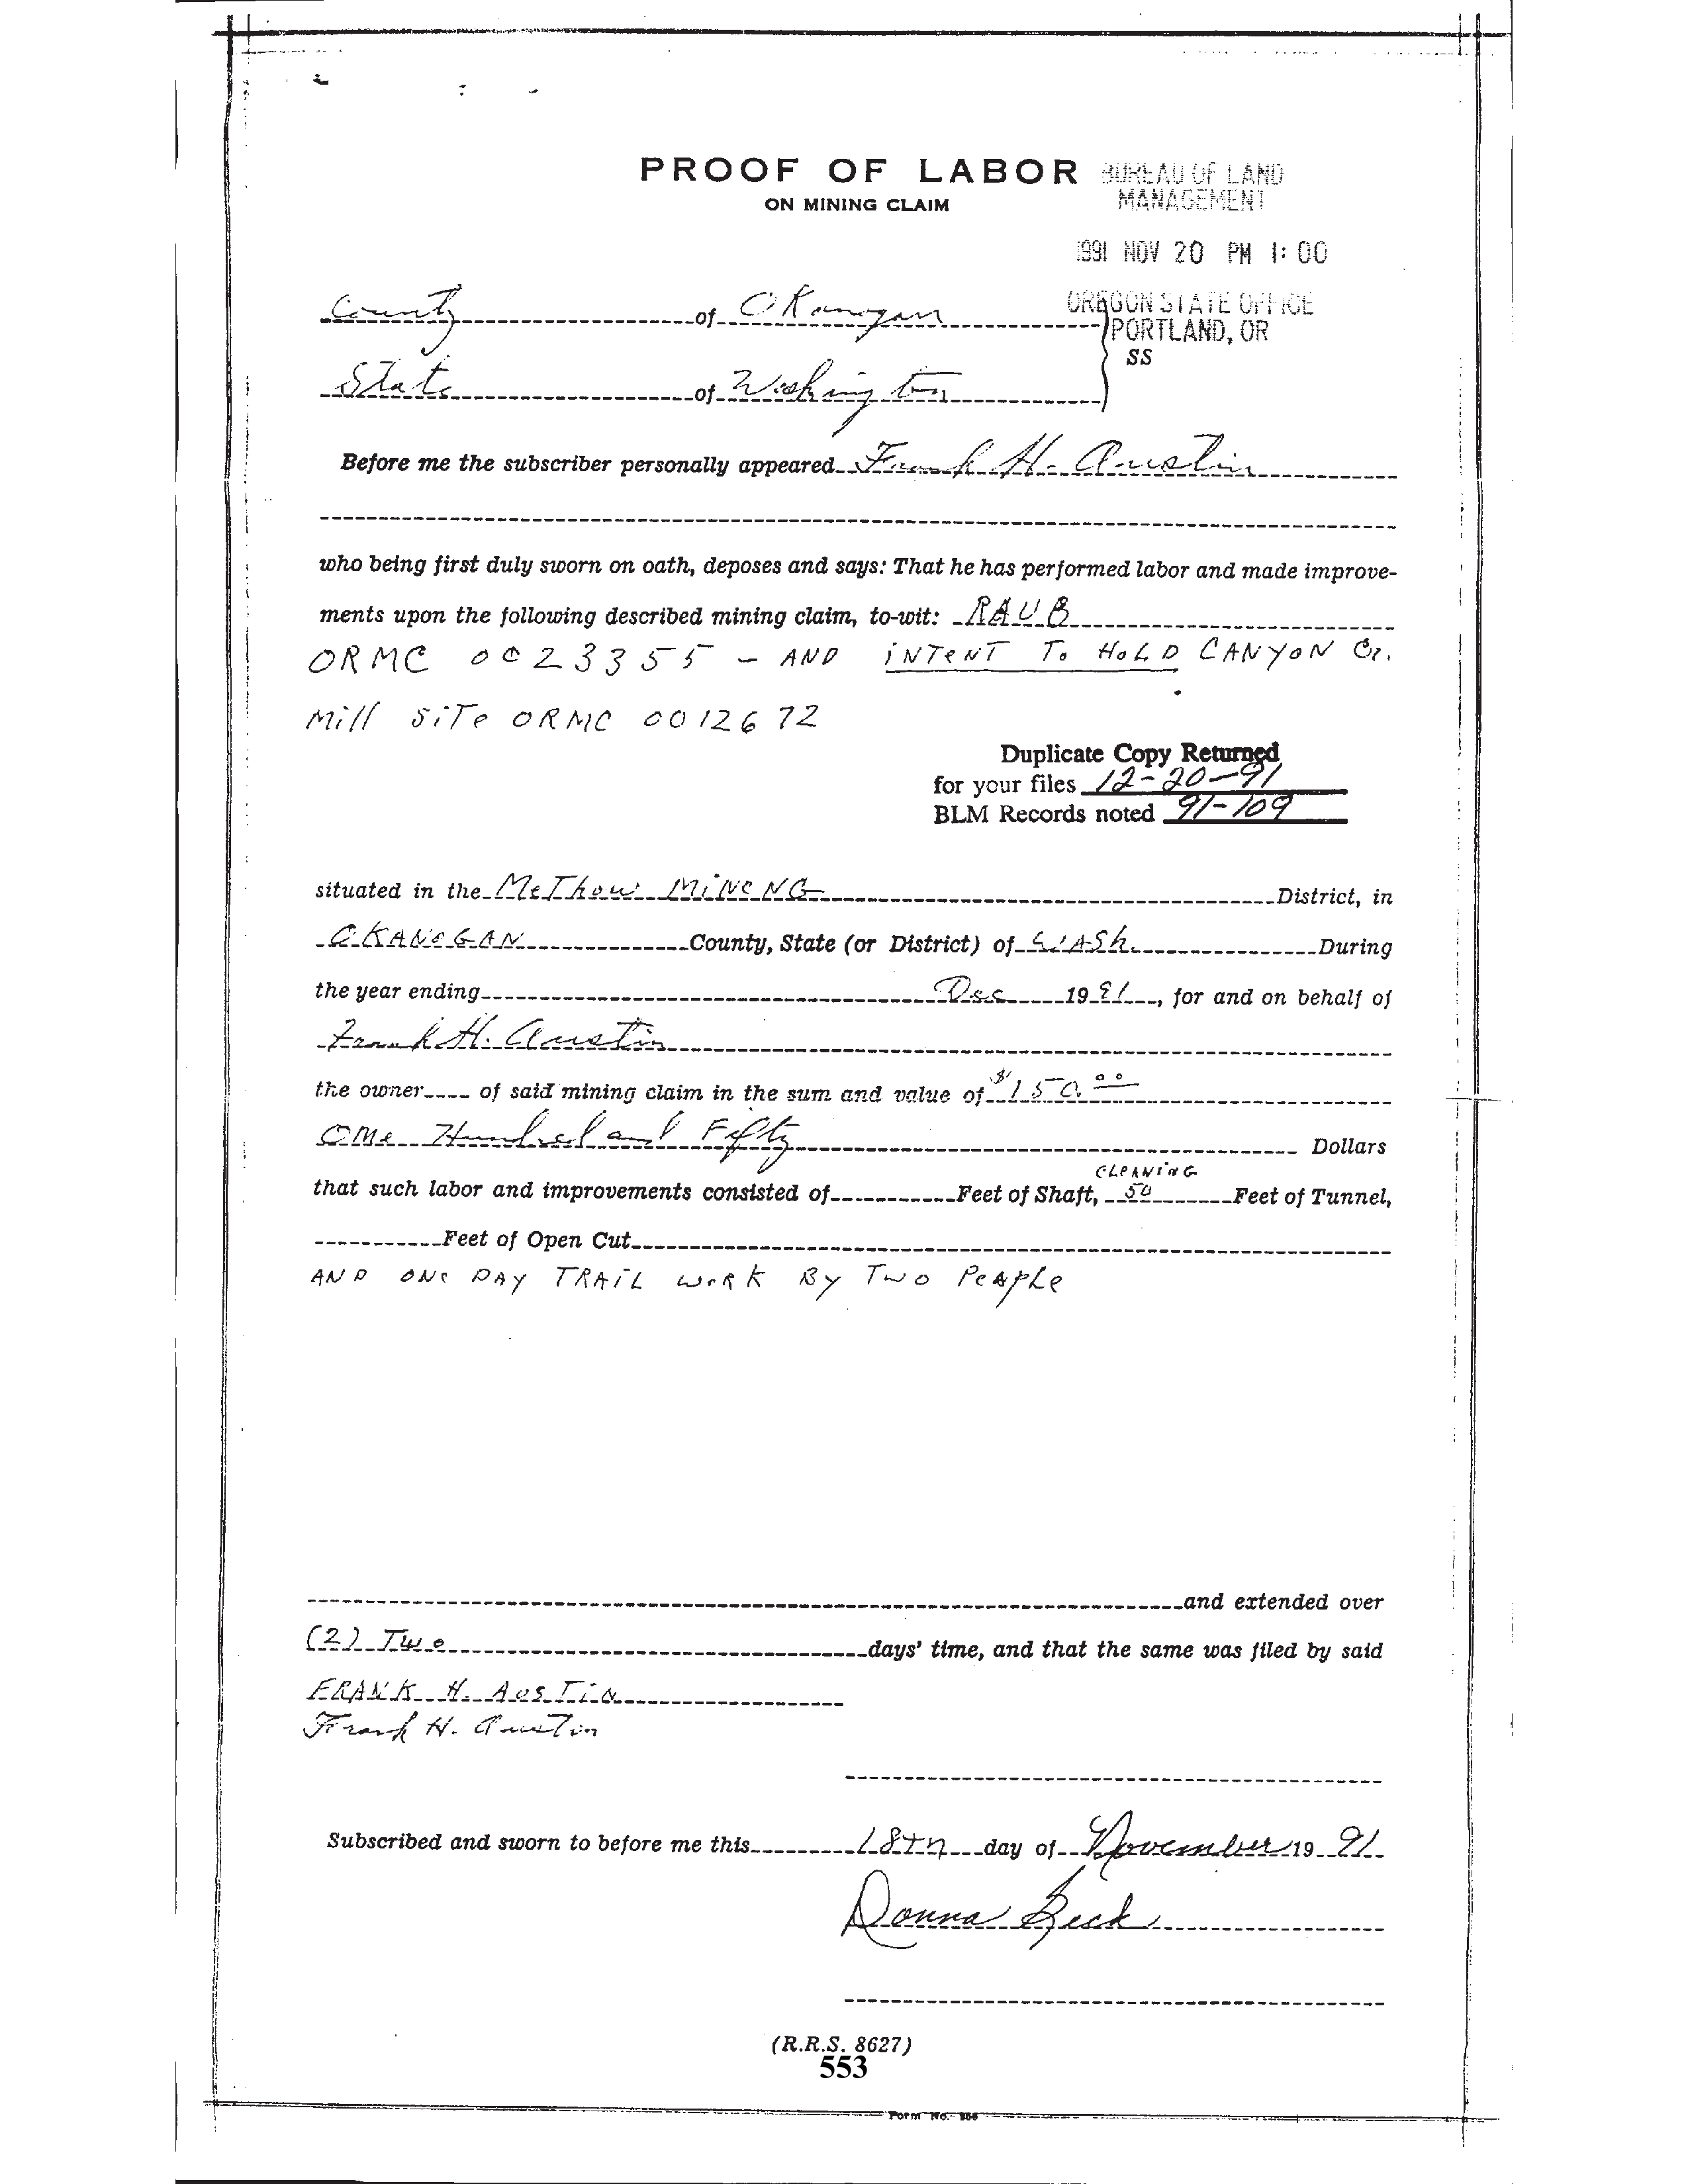 PROOF OF LABOR
ON MINING CLAIM
BUREAU OF LAND
MANAGEMENT
1991 NOV 20 PM 1:00
OREGON STATE OFFICE
PORTLAND, OR
County of Okanogan
SS
State of Washington
Before me the subscriber personally appeared Frank H. Austin
who being first duly sworn on oath, deposes and says: That he has performed labor and made improve-
ments upon the following described mining claim, to-wit: RAUB
ORMC 0023355 - AND INTENT To HOLD CANYON Cr.
Mill SiTe ORMC 0012672
Duplicate Copy Returned
for your files 12-20-91
BLM Records noted 91-109
situated in the MeThow MiNeNG District, in
OKANOGAN County, State (or District) of WASh. During
the year ending Dec 1991, for and on behalf of
Frank H. Austin
the owner of said mining claim in the sum and value of $150.00
One Hundred and Fifty Dollars
CLEANING
that such labor and improvements consisted of Feet of Shaft, 50 Feet of Tunnel,
Feet of Open Cut
AND ONe DAY TRAiL WoRK By Two PeApLe
and extended over
(2) Two days' time, and that the same was filed by said
FRANK H. AusTiN
Frank H. Austin
Subscribed and sworn to before me this 18th day of November 1991
Donna Beck
(R.R.S. 8627)
553
Form No.